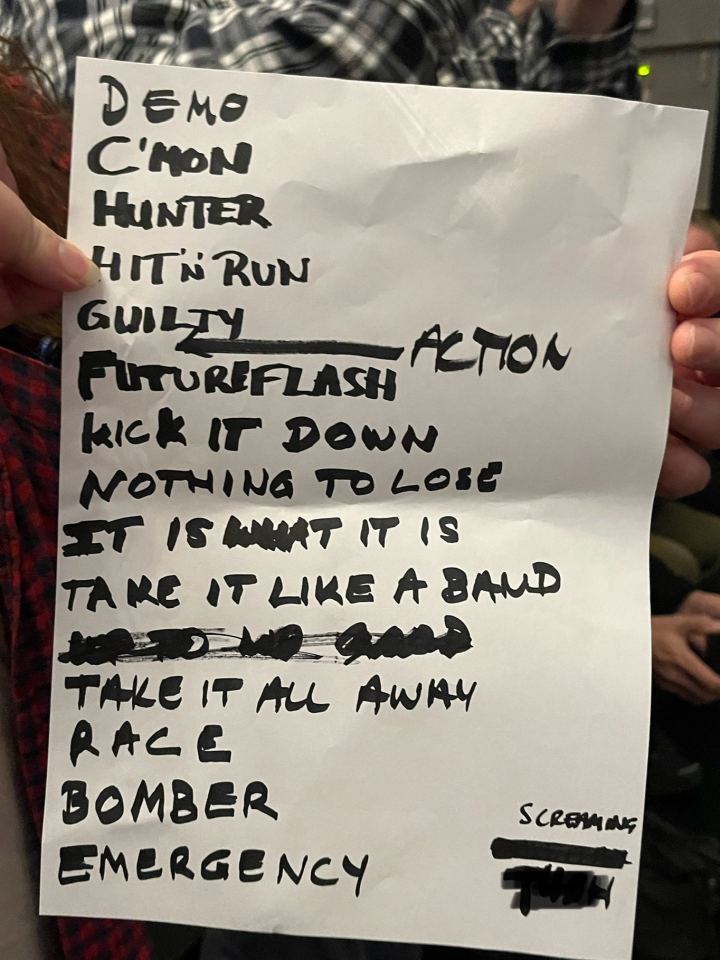 DEMO
C'MON
HUNTER
HIT 'N' RUN
GUILTY
ACTION
FUTUREFLASH
KICK IT DOWN
NOTHING TO LOSE
IT IS WHAT IT IS
TAKE IT LIKE A BAND
TAKE IT ALL AWAY
RACE
BOMBER
EMERGENCY
SCREAMING